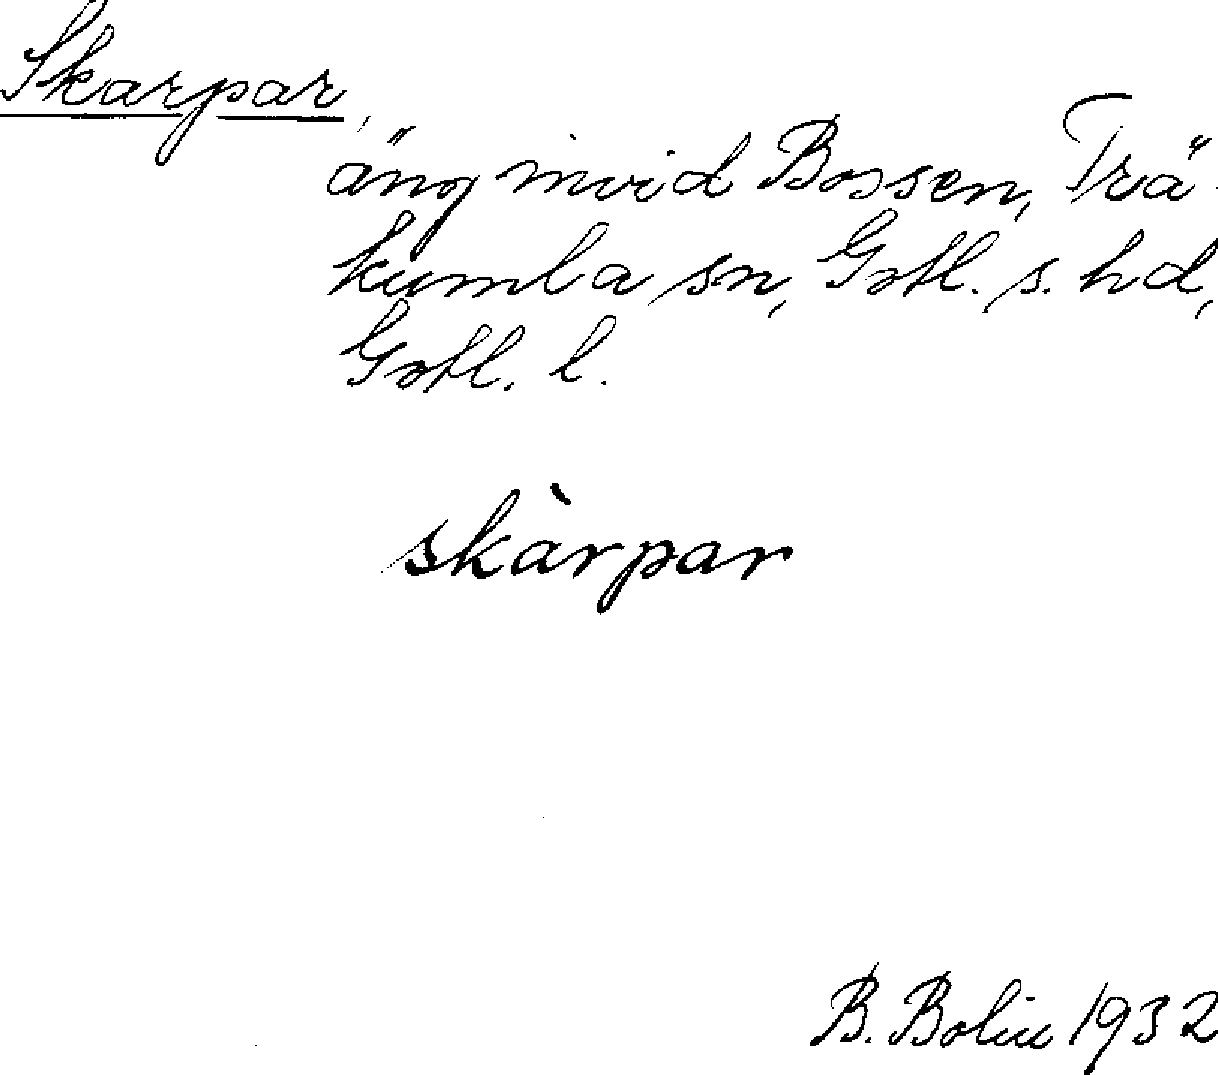 Skarpar,
äng invid Bossen, Trä-
kumla sn, Gotl. s. hd,
Gotl. l.
skàrpar
B. Bolin 1932